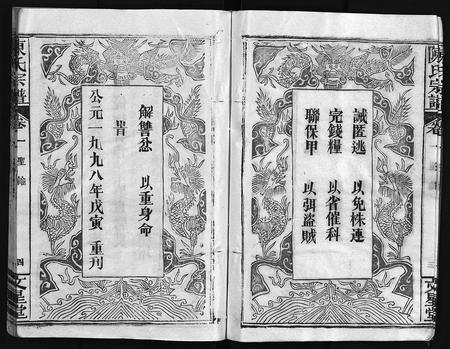 陳氏宗譜
卷一
文星堂
誡匿逃 以免株連
完錢糧 以省催科
聯保甲 以弭盜賊
解讐忿 以重身命
公元一九九八年戊寅 重刊
陳氏宗譜
卷一 聖諭
四
文星堂